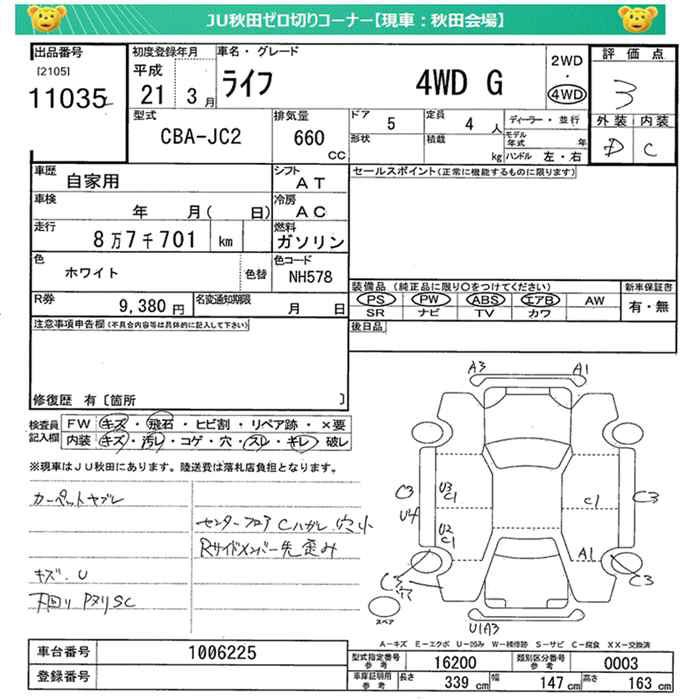 JU秋田ゼロ切りコーナー【現車：秋田会場】
出品番号
[2105]
11035
初度登録年月
平成
21 3月
車名・グレード
ライフ 4WD G
2WD
・
4WD
評価点
3
外装 内装
D C
型式
CBA-JC2
排気量
660
CC
ドア 5
定員 4 人
ディーラー・並行
形状
積載 kg
モデル年式 年
ハンドル 左・右
車歴 自家用
シフト AT
セールスポイント(正常に機能するものに限ります)
車検 年 月( 日)
冷房 AC
走行 8万7千701 km
燃料 ガソリン
色 ホワイト
色替
色コード NH578
装備品 (純正品に限り〇をつけてください)
新車保証書
PS PW ABS エアB AW
有・無
SR ナビ TV カワ
R券 9,380円
名変通知期限 月 日
後日品
注意事項申告欄(不具合内容等は具体的に記入して下さい)
修復歴 有〔箇所 〕
検査員記入欄
FW キズ・飛石・ヒビ割・リペア跡・×要
内装 キズ・汚レ・コゲ・穴・スレ・キレ・破レ
※現車はJU秋田にあります。陸送費は落札店負担となります。
カーペットヤブレ
センターフロア Cハガレ 穴小
Rサイドメンバー先歪み
キズ.U
下回り PヌリSC
A3 A1
C3 U3 C1 C1 C3
U4 U2 C1 A1
C3 C3
スペア
U1A3
A－キズ E－エクボ U－凹み W－補修跡 S－サビ C－腐食 XX－交換済
車台番号 1006225
登録番号
型式指定番号 参考 16200
類別区分番号 参考 0003
車庫証明用 参考 長さ 339 cm 幅 147 cm 高さ 163 cm